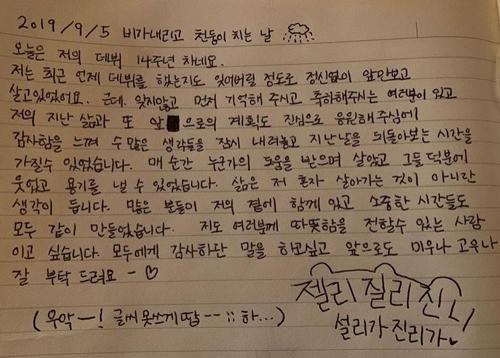 2019/9/5 비가내리고 천둥이 치는 날
오늘은 저의 데뷔 14주년 차네요.
저는 최근 언제 데뷔를 했는지도 잊어버릴 정도로 정신없이 앞만보고
살고있었어요. 근데, 잊지않고 먼저 기억해 주시고 축하해주시는 여러분이 있고
저의 지난 삶과 또 앞으로의 계획도 진심으로 응원해주심에
감사함을 느껴 수 많은 생각들을 잠시 내려놓고 지난날을 뒤돌아보는 시간을
가질수 있었습니다. 매 순간 누군가의 도움을 받으며 살았고 그들 덕분에
웃었고 용기를 낼 수 있었습니다. 삶은 저 혼자 살아가는 것이 아니란
생각이 듭니다. 많은 분들이 저의 곁에 함께 있고 소중한 시간들도
모두 같이 만들었습니다. 저도 여러분께 따뜻함을 전할수 있는 사람
이고 싶습니다. 모두에게 감사하단 말을 하고싶고 앞으로도 미우나 고우나
잘 부탁 드려요 ~ ♡
젤리 질리 진니
(우악-! 글씨 못쓰게땁--;; 하...)
설리가 진리가♥